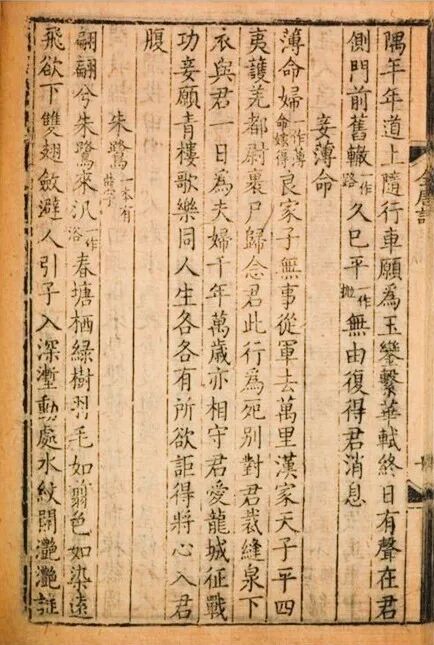 隅年年道上隨行車願為玉鑾繫華軾終日有聲在君
側門前舊轍一作路久已平一作拋無由復得君消息
妾薄命
薄命婦一作薄命嫁得良家子無事從軍去萬里漢家天子平四
夷護羌都尉裹尸歸念君此行為死別對君裁縫泉下
衣與君一日為夫婦千年萬歲亦相守君愛龍城征戰
功妾願青樓歌樂同人生各各有所欲詎得將心入君
腹
朱鷺一本有字
翩翩兮朱鷺來汎一作浴春塘栖綠樹羽毛如翦色如染遠
飛欲下雙翅斂避人引子入深塹動處水紋開灧灧誰